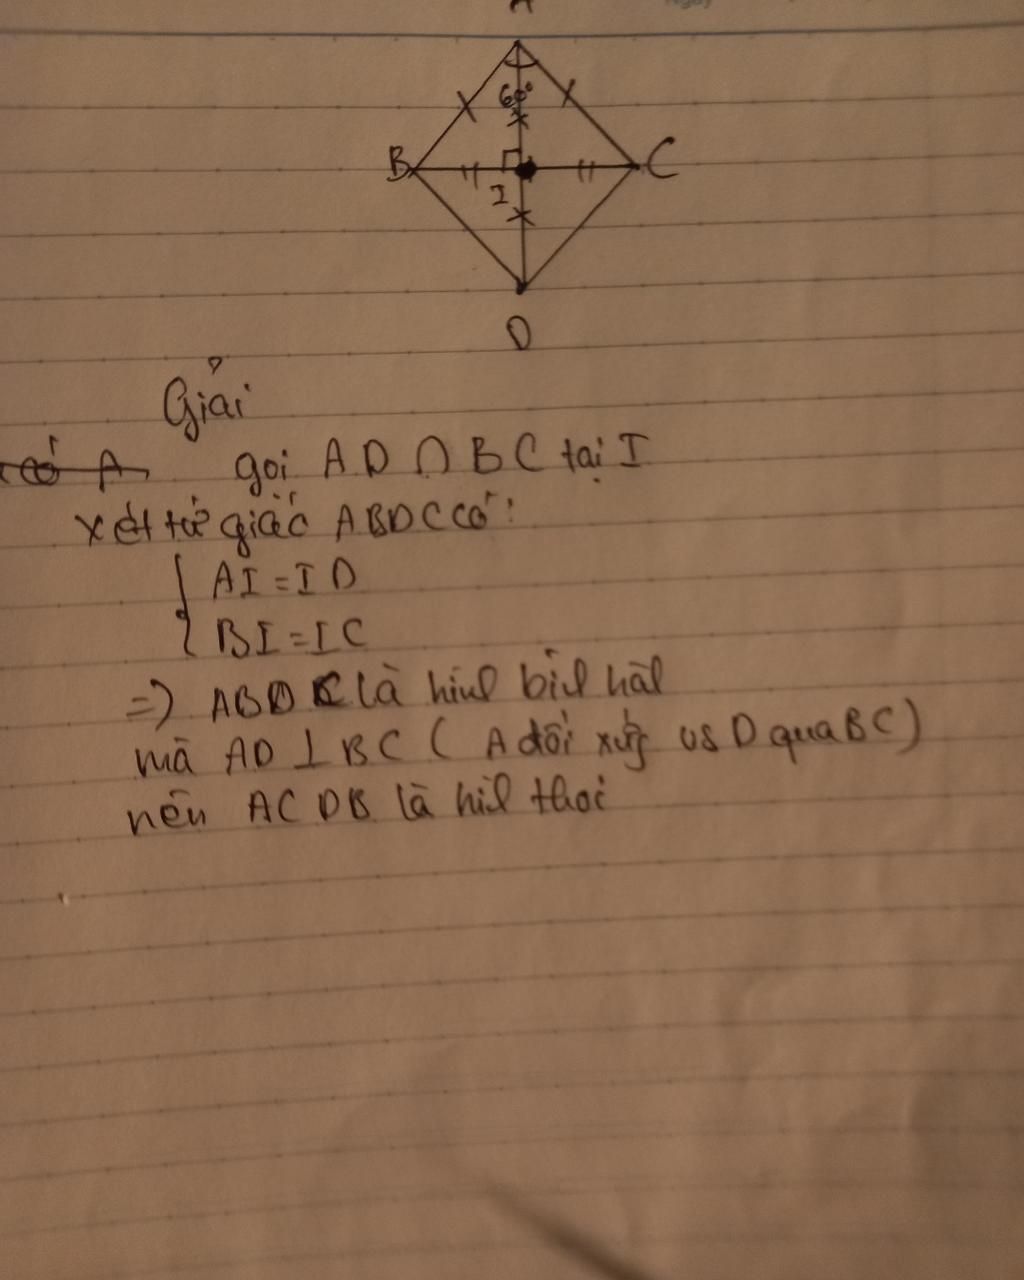 A
60°
B
C
I
D
Giải
có A gọi AD ∩ BC tại I
xét tứ giác ABDC có:
AI = ID
BI = IC
=> ABDC là hinh binh hàh
mà AD ⊥ BC ( A đối xứg vs D qua BC )
nên ACDB là hih thoi